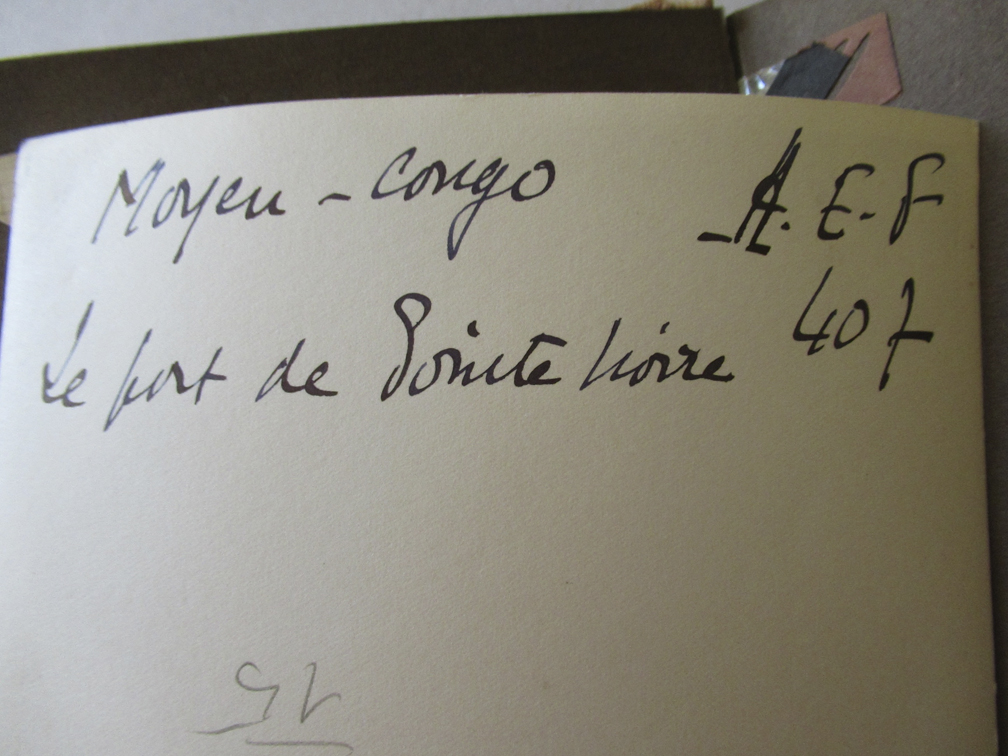 Moyen - Congo
- A. E. F
Le port de Pointe Noire
40 f
15